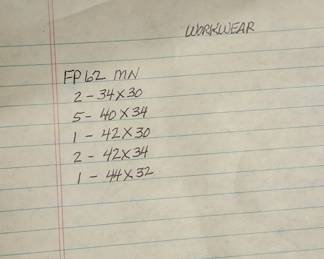 WORKWEAR
FP62 MN
2-34X30
5-40X34
1-42X30
2-42X34
1-44X32